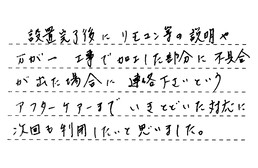 設置完了後にリモコン等の説明や
万が一 工事で加工した部分に不具合
が出た場合に 連絡下さいという
アフターケアーまで いきとどいた対応に
次回も利用したいと思いました。